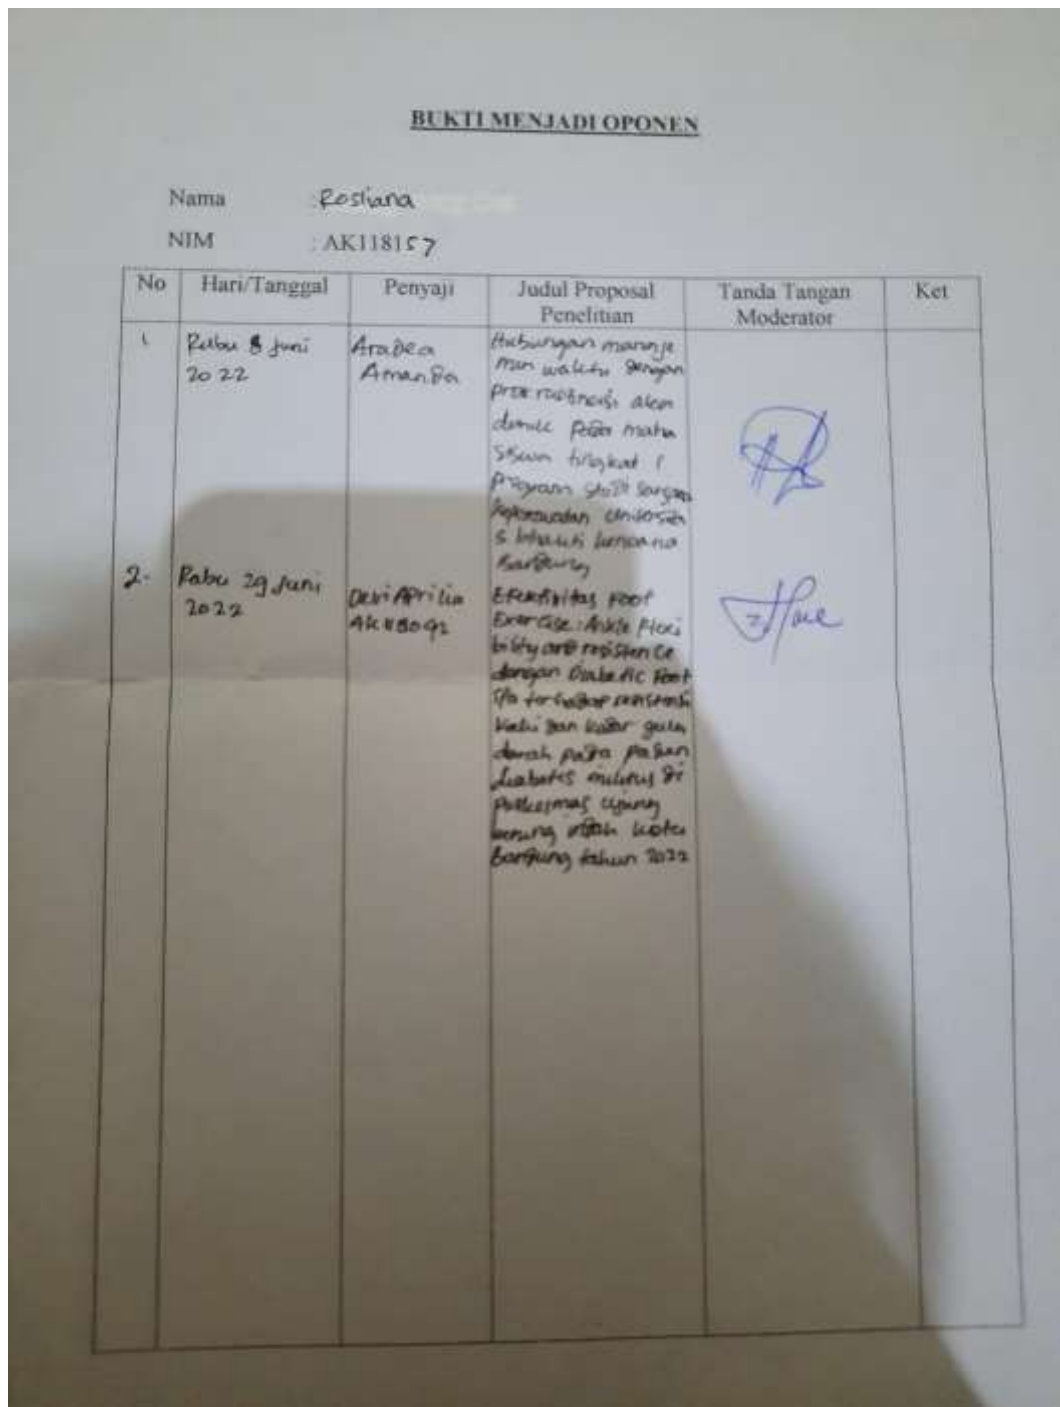 BUKTI MENJADI OPONEN
Nama : Rosliana
NIM : AK118157
No Hari/Tanggal Penyaji Judul Proposal Penelitian Tanda Tangan Moderator Ket
1 Rabu 8 Juni 2022
Aradea Amanda
Hubungan manaje
men waktu dengan
akade
demik pada maha
siswa tingkat 1
program studi sarjana
keperawatan Universita
s bhakti kencana
Bandung
2. Rabu 29 Juni 2022
Dewi Aprilia
AK118092
Efektifitas Foot
Exercise: Ankle Flexi
bility and resistence
dengan Diabetic Foot
terhadap
kaki dan kadar gula
darah pada pasien
diabetes di
Puskesmas Ujung
berung kota
Bandung tahun 2022